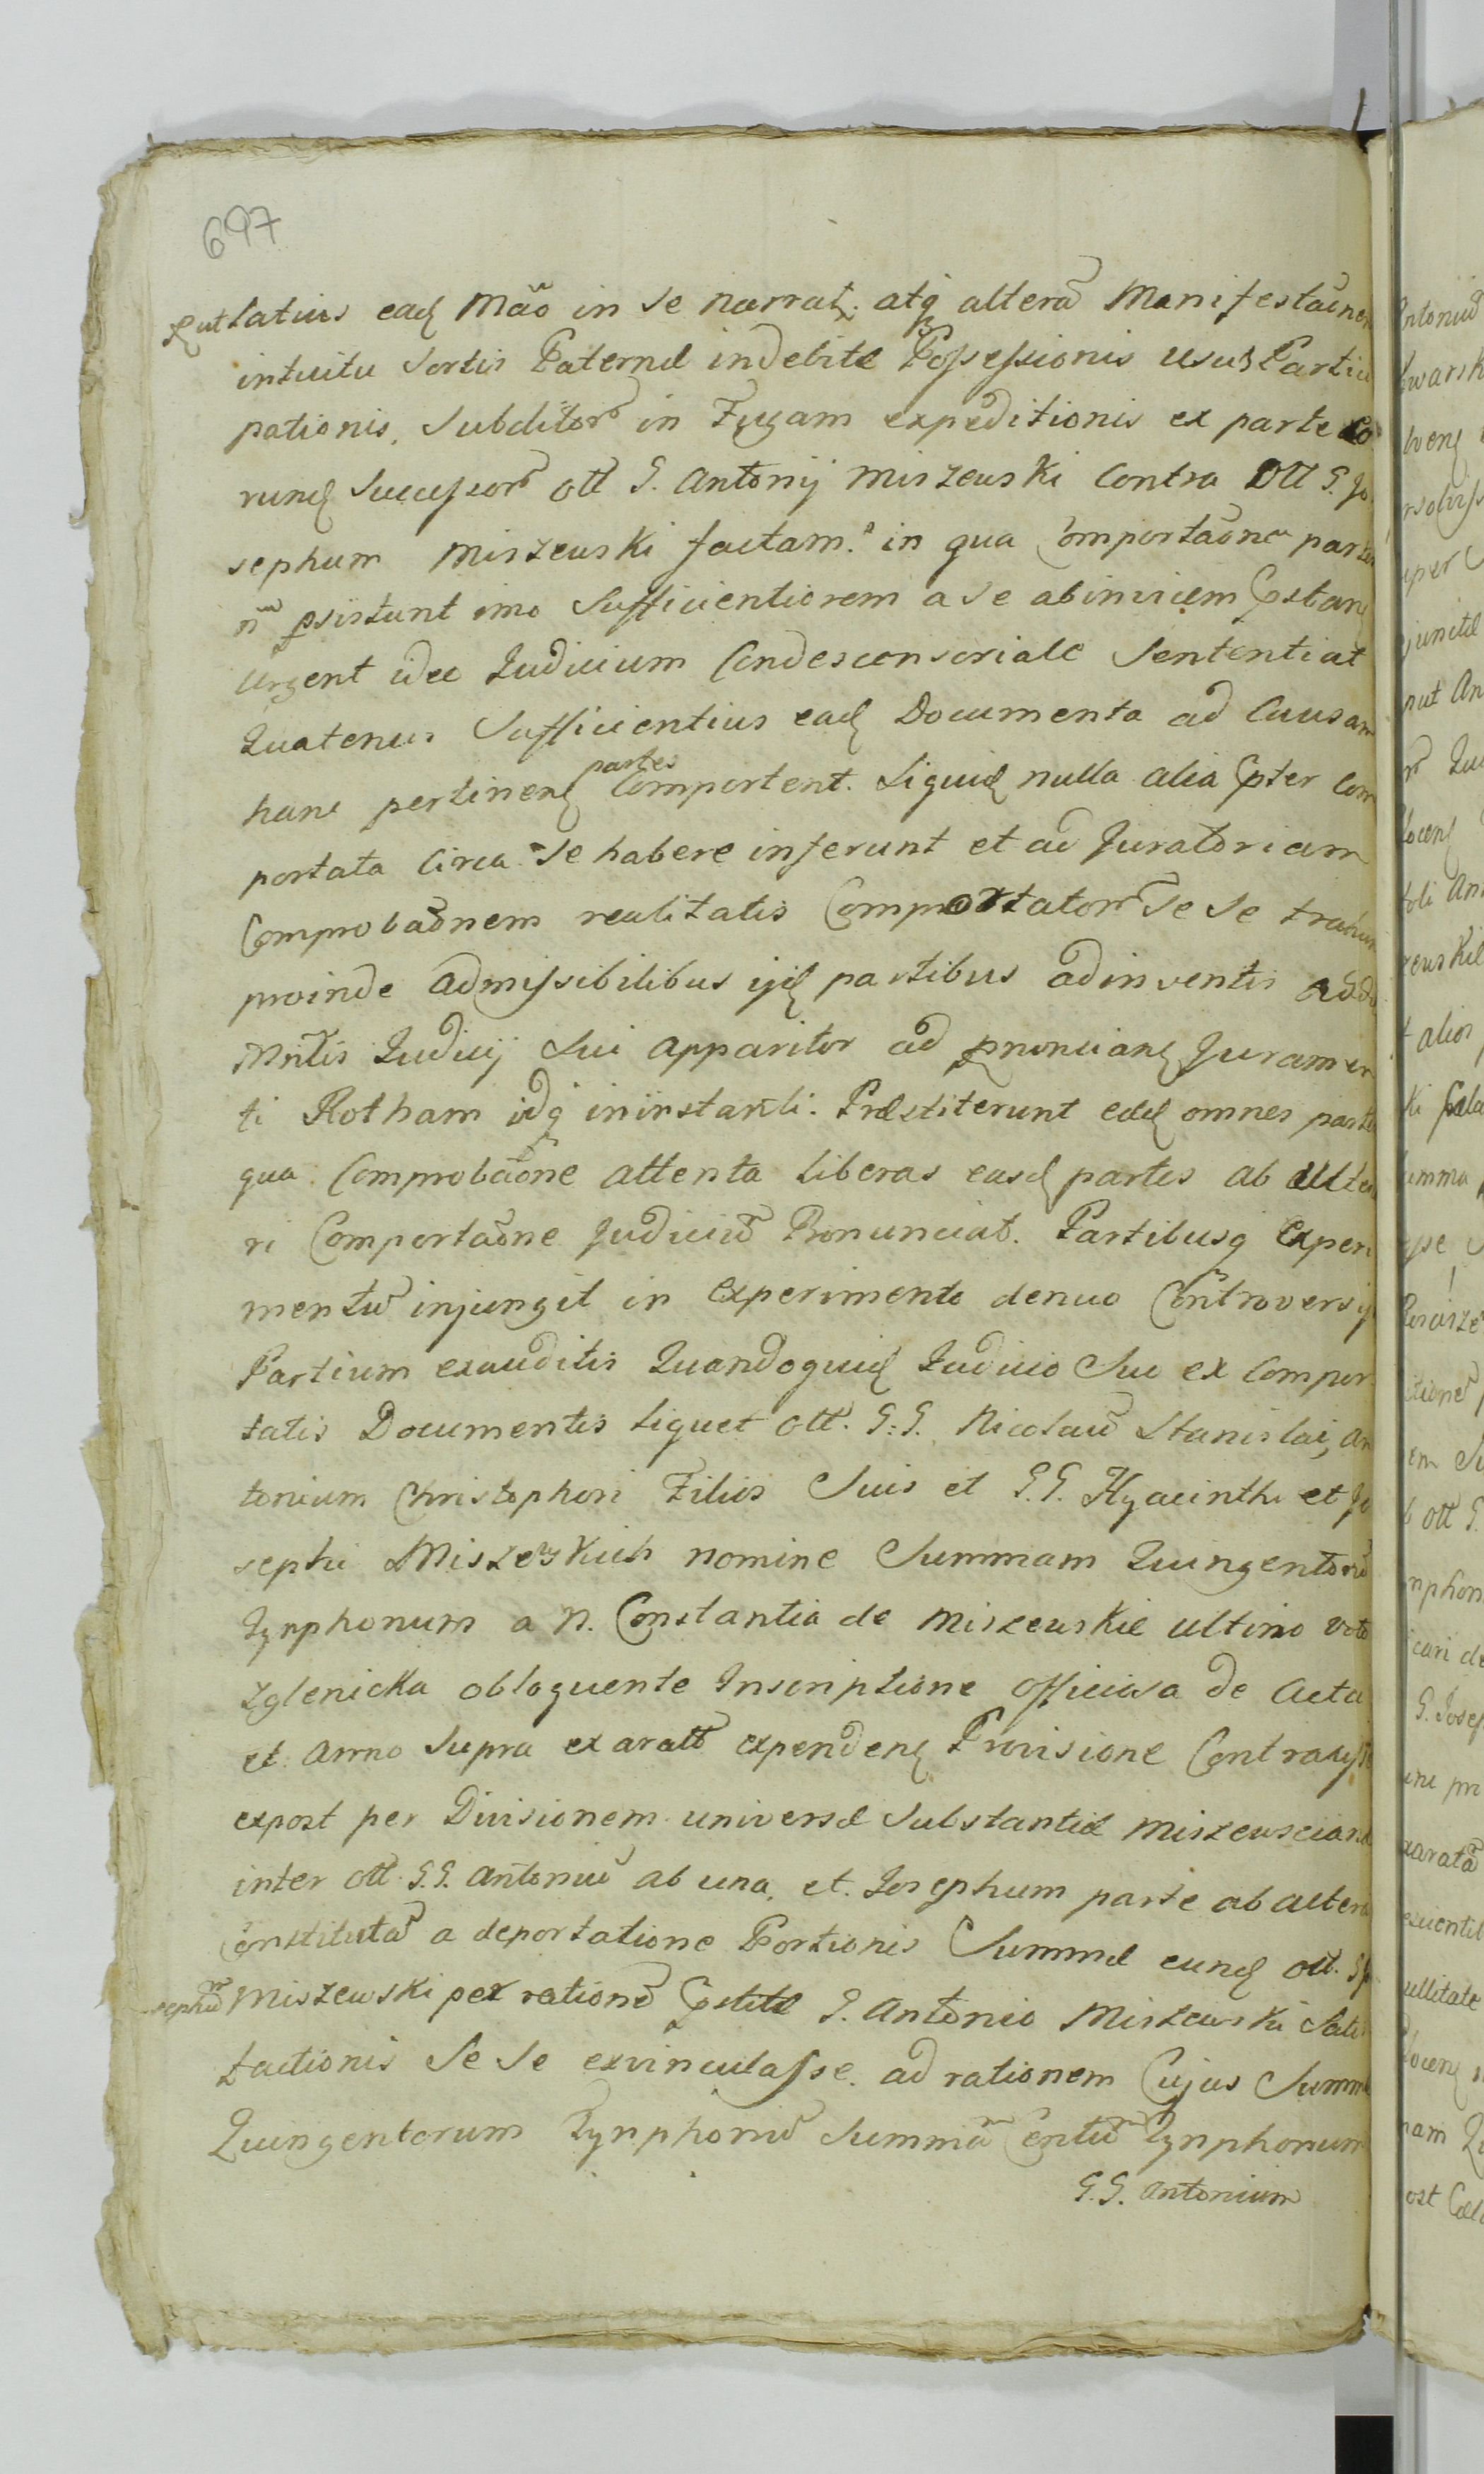 697
put latius ead Mão in se narrat. atq alterã Manifestaõnem
intuitu sortis Paternæ indebitæ Possessionis usus Partici
pationis, Subditor in Fugam expeditionis ex parte eo
rund Successor Ott G. Antonij Miszewski Contra Ott G. Jo
sephum Miszewski factam. in qua Comportaõne partes
ñ psistunt imo Sufficientiorem a se abinvicem pstand
urgent ideo Judicium Condescensoriale Sententiat
Quatenus Sufficientius ead Documenta ad Causam
hanc pertinend partes Comportent. Siquid nulla alia pter Com
portata Circa se habere inferunt et ad Juratoriam
Comprobaõnem realitatis Comportator se se trahunt
proinde admissibilibus ijsd partibus adinventis addo
Mntis Judicij sui apparitor ad pnonciand Juramen
ti Rotham idq ininstanti. Præstiterunt eæd omnes partes
qua Comprobaõne attenta Liberas easd partes ab ulte
ri Comportaõne Judiciũ Pronunciat. Partibusq Experi
mentũ injungit in Experimento denuo Controversijs
Partium exauditis Quandoquid Judicio suo ex Compor
tatis Documentis Liquet Ott. G:G. Nicolaũ Stanislai, An
tonium Christophori Filios Suis et G.G. Hyacinthi et Jo
sephi Miszewskich nomine Summam Quingentorũ
Tynphonum a N. Constantia de Miszewskie ultimo voto
Zglenicka obloquente Inscriptione officiosa de Actu
et Anno Supra exarato expendend Provisione Contraxisse
expost per Divisionem universæ Substantiæ Miszewscianæ
inter Ott G.G. Antoniũ ab una, et Josephum parte ab altera
Constitutã a deportatione Portionis Summæ eund Ott. G Jo
sephũ Miszewski per rationẽ pstitæ G. Antonio Miszewski Satis
factionis se se exvinculasse. ad rationem Cujus Summæ
Quingentorum Tynphonũ Summã Centũ Tynphonum
G.G. Antonium